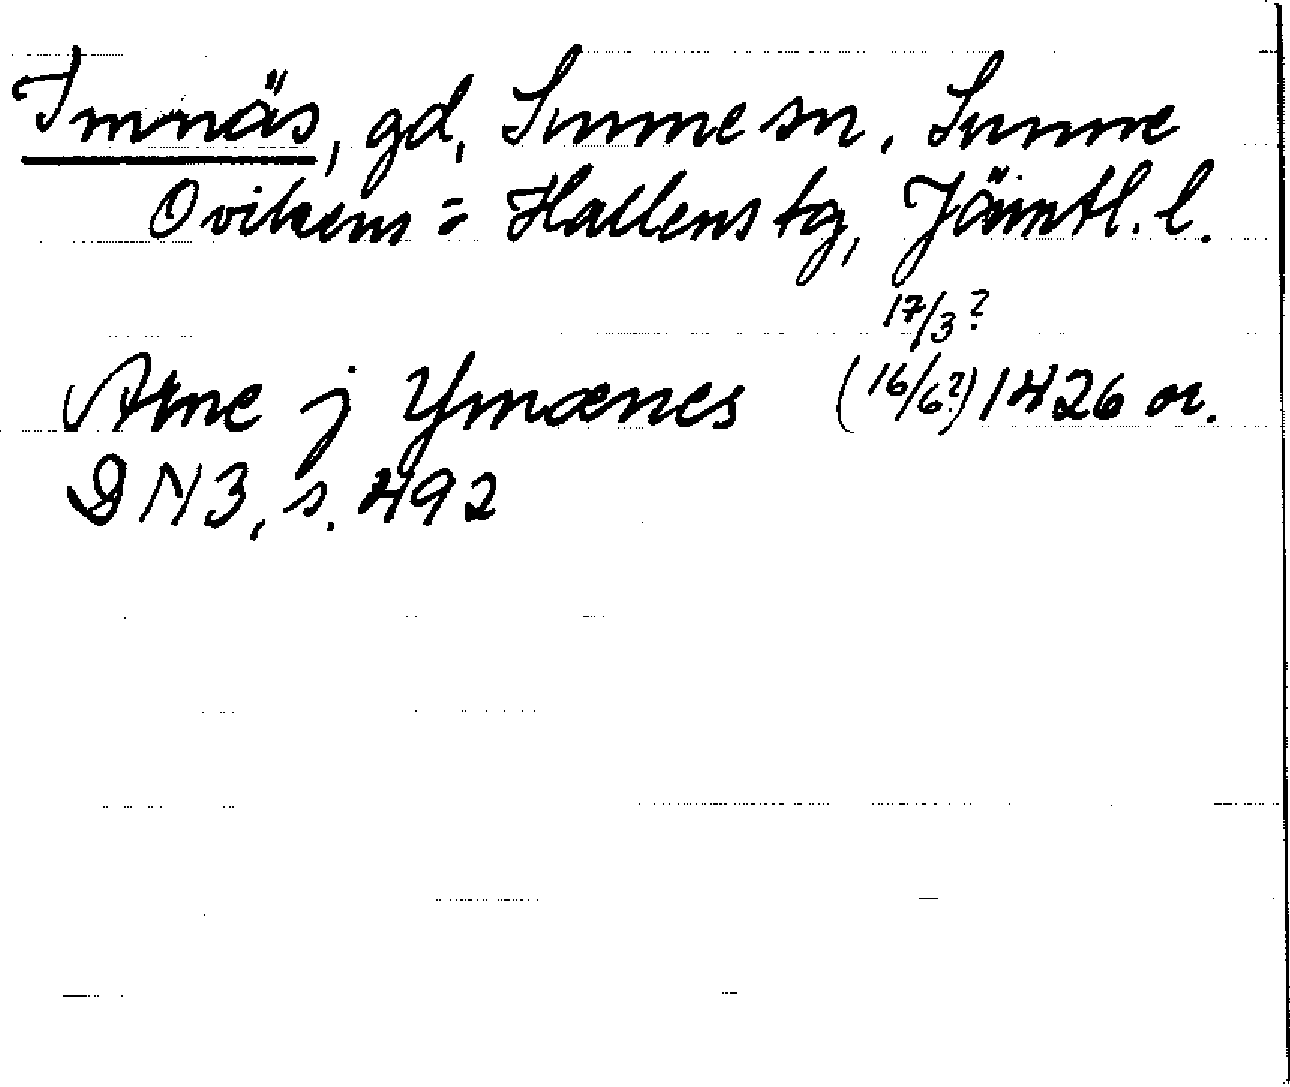 Imnäs, gd, Sunne sn. Sunne
Ovikens = Hallens tg, Jämtl. l.
17/3?
Arne j Ymanes (16/6?) 1426 or.
DN3, s. 492